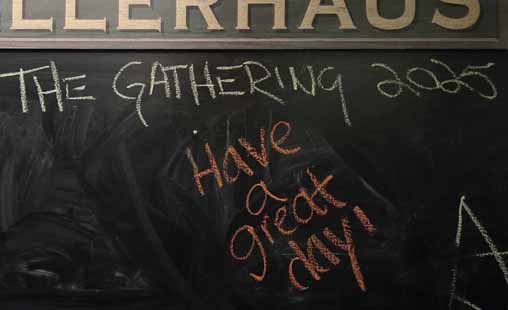 LLERHAUS
THE GATHERING 2025
Have
a
great
day!
A